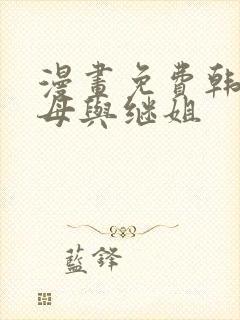 漫畫免費韩
母與继姐
藍鋒